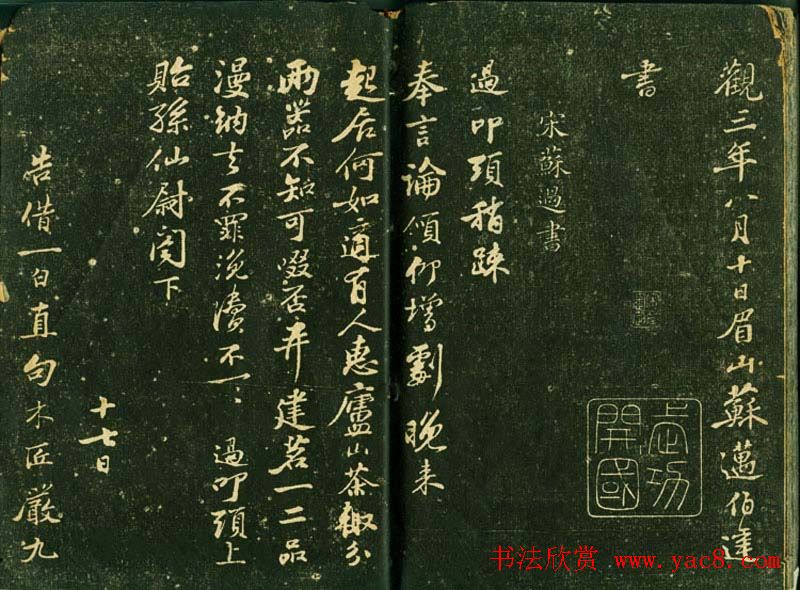 觀三年八月十日眉山蘇邁伯達
書
宋蘇過書
過叩頭稍踈
奉言論傾仰增劇晚来
起居何如適有人惠廬山茶輙分
兩器不知可啜否并建茗一二品
漫納去不罪浼瀆不一〻 過叩頭上
貽孫仙尉閤下
十七日
告借一白直勾木匠嚴九
武功
開國
书法欣赏 www.yac8.com